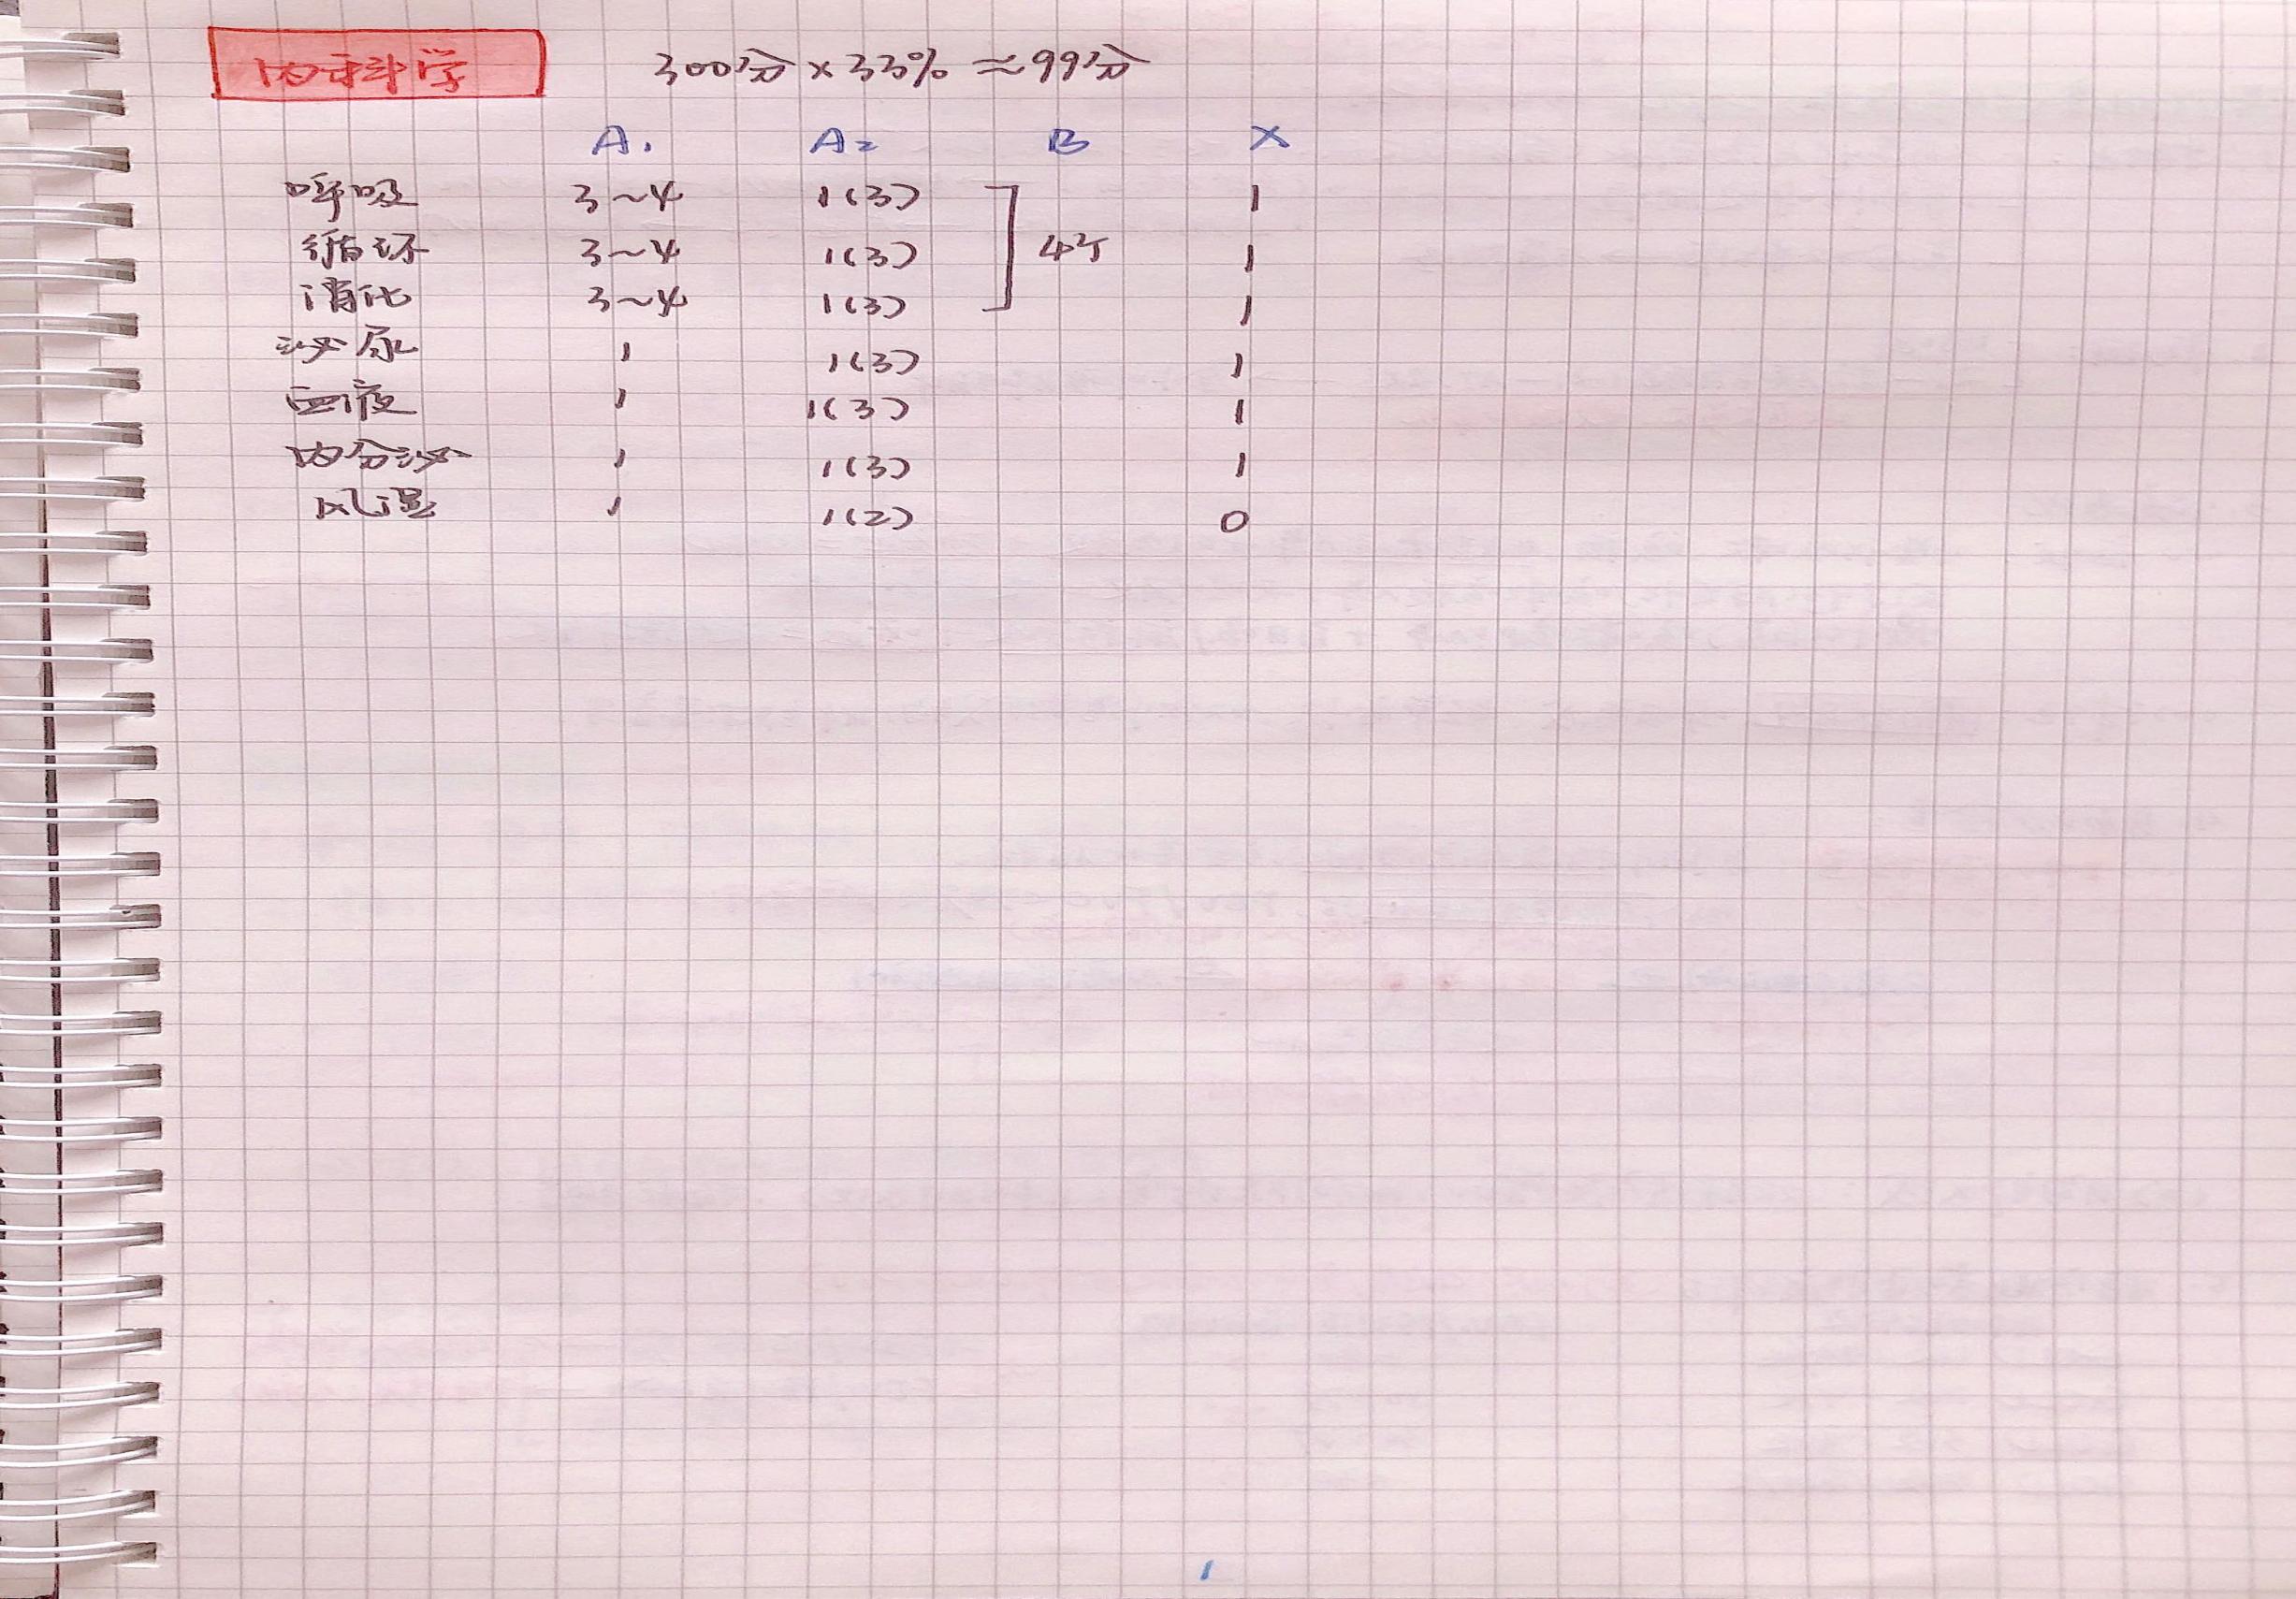 内科学 300分×33% ≈99分
A₁ A₂ B X
呼吸 3~4 1(3) 1
循环 3~4 1(3) 4个 1
消化 3~4 1(3) 1
泌尿 1 1(3) 1
血液 1 1(3) 1
内分泌 1 1(3) 1
风湿 1 1(2) 0
1